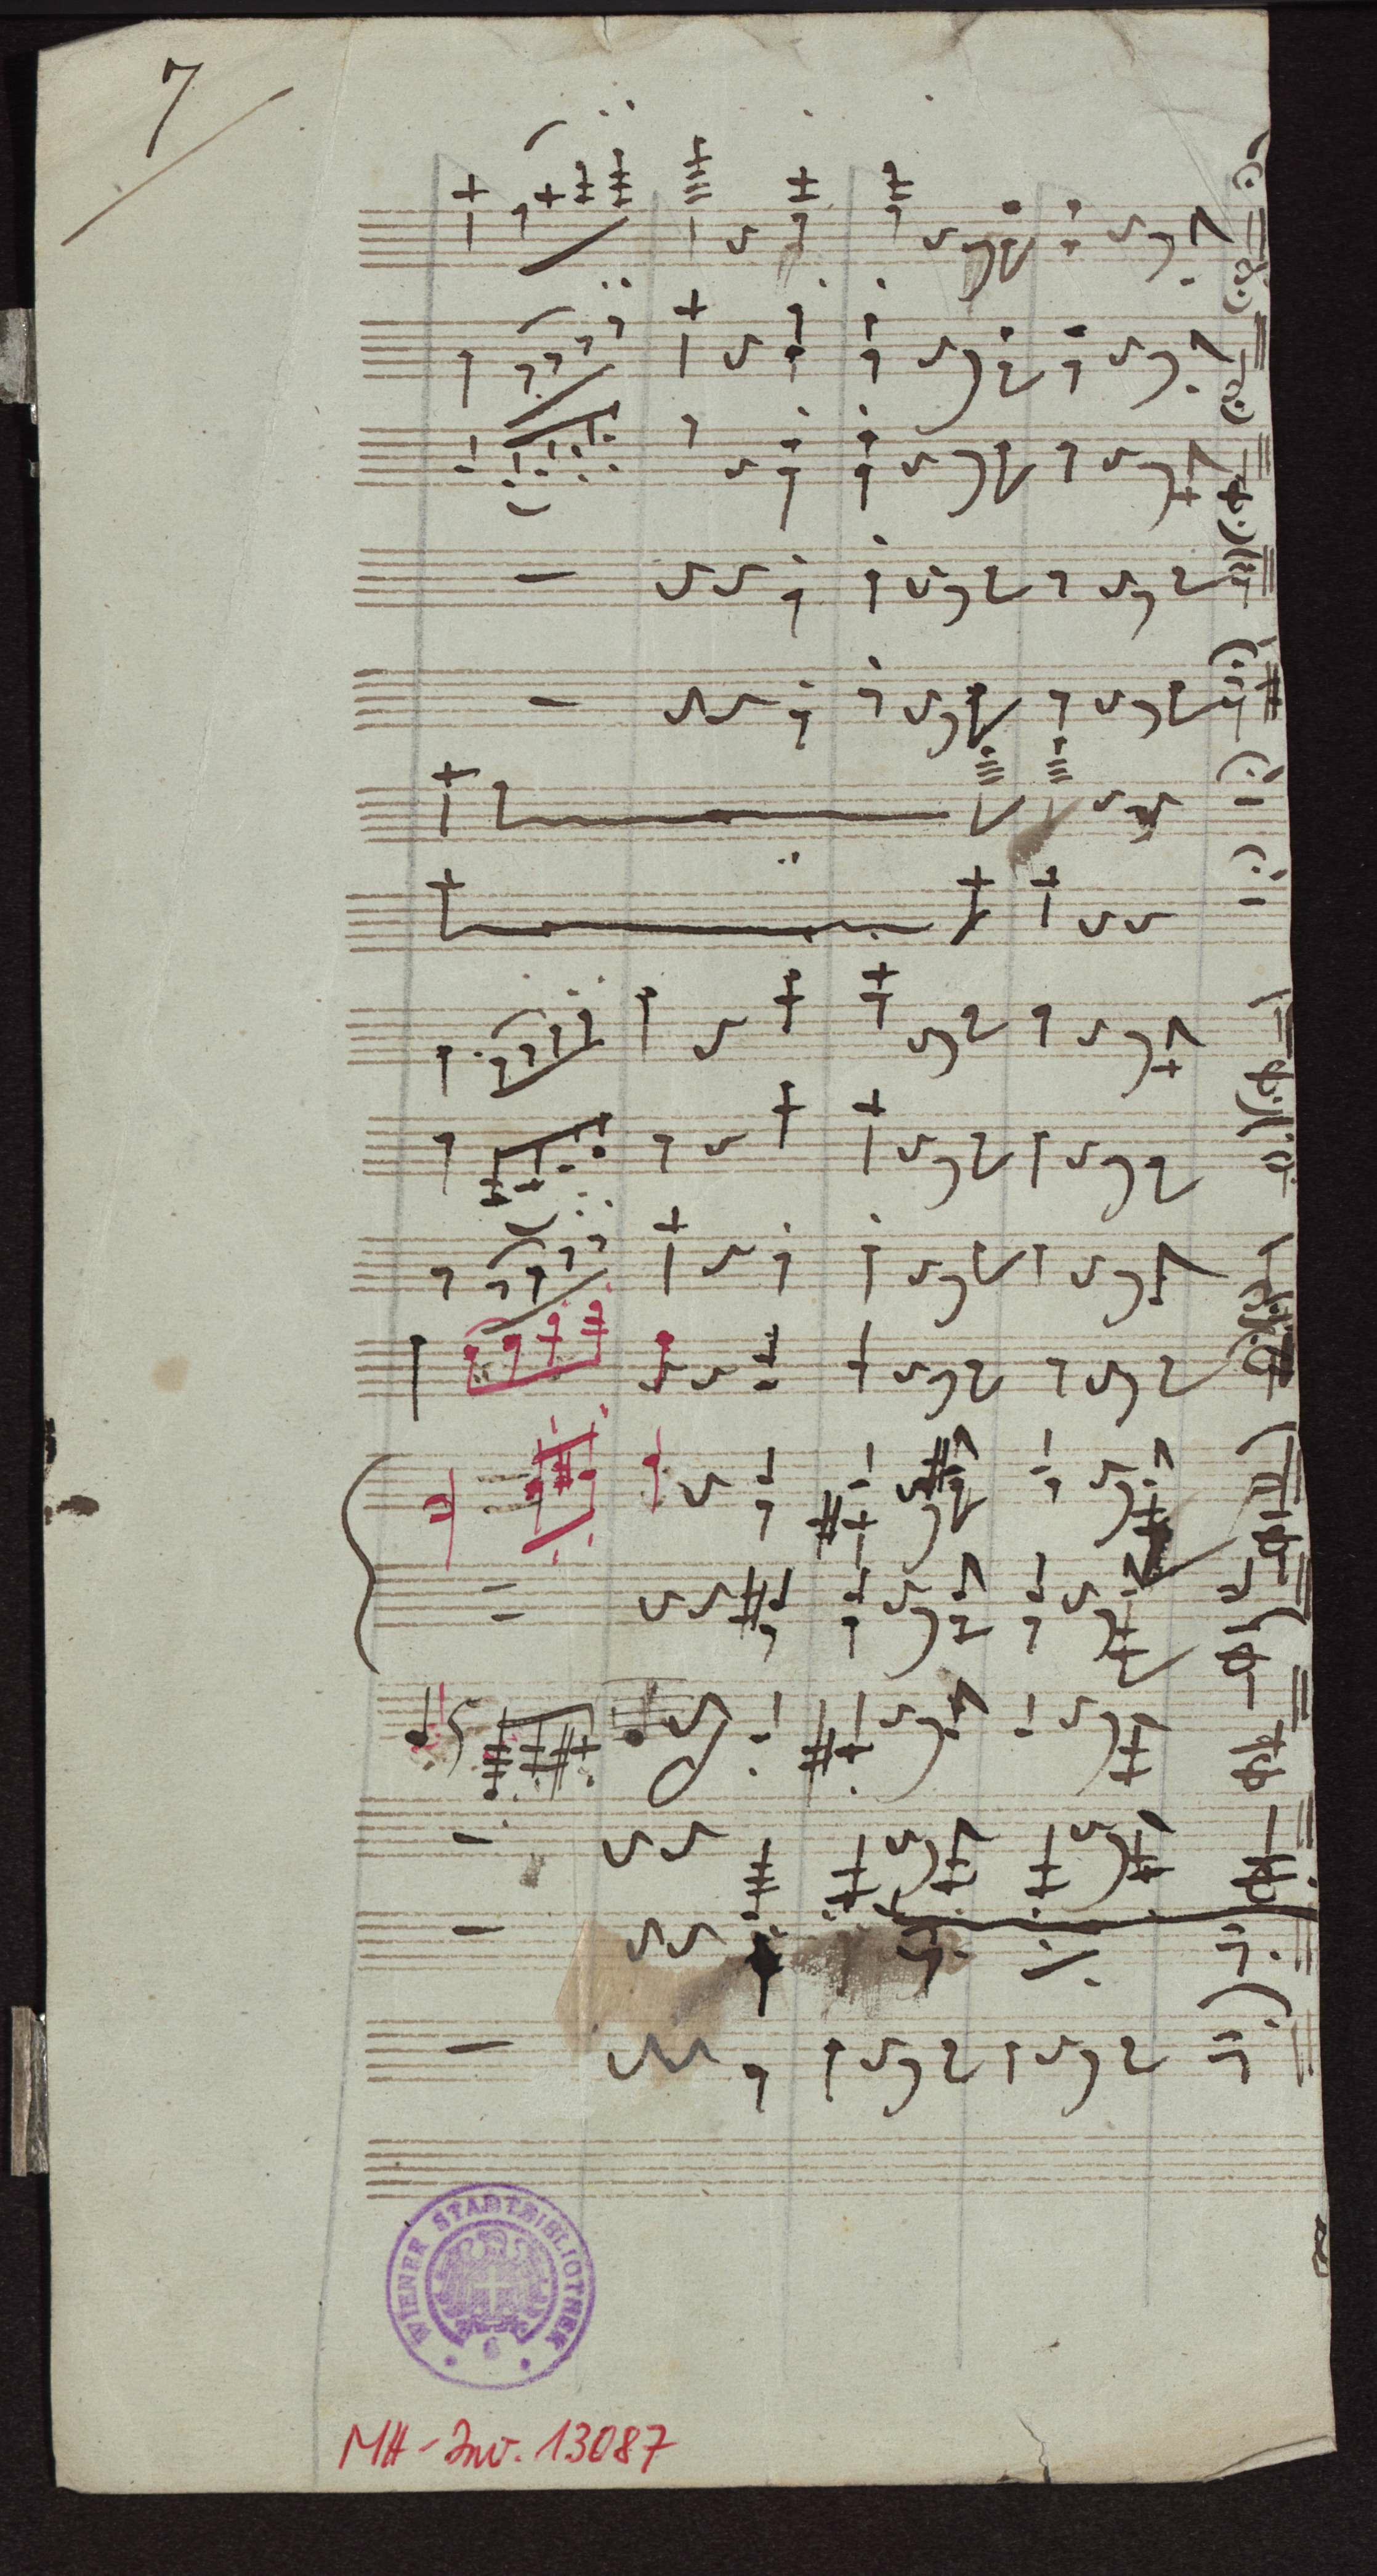 7
WIENER STADTBIBLIOTHEK
MH-Inv. 13087